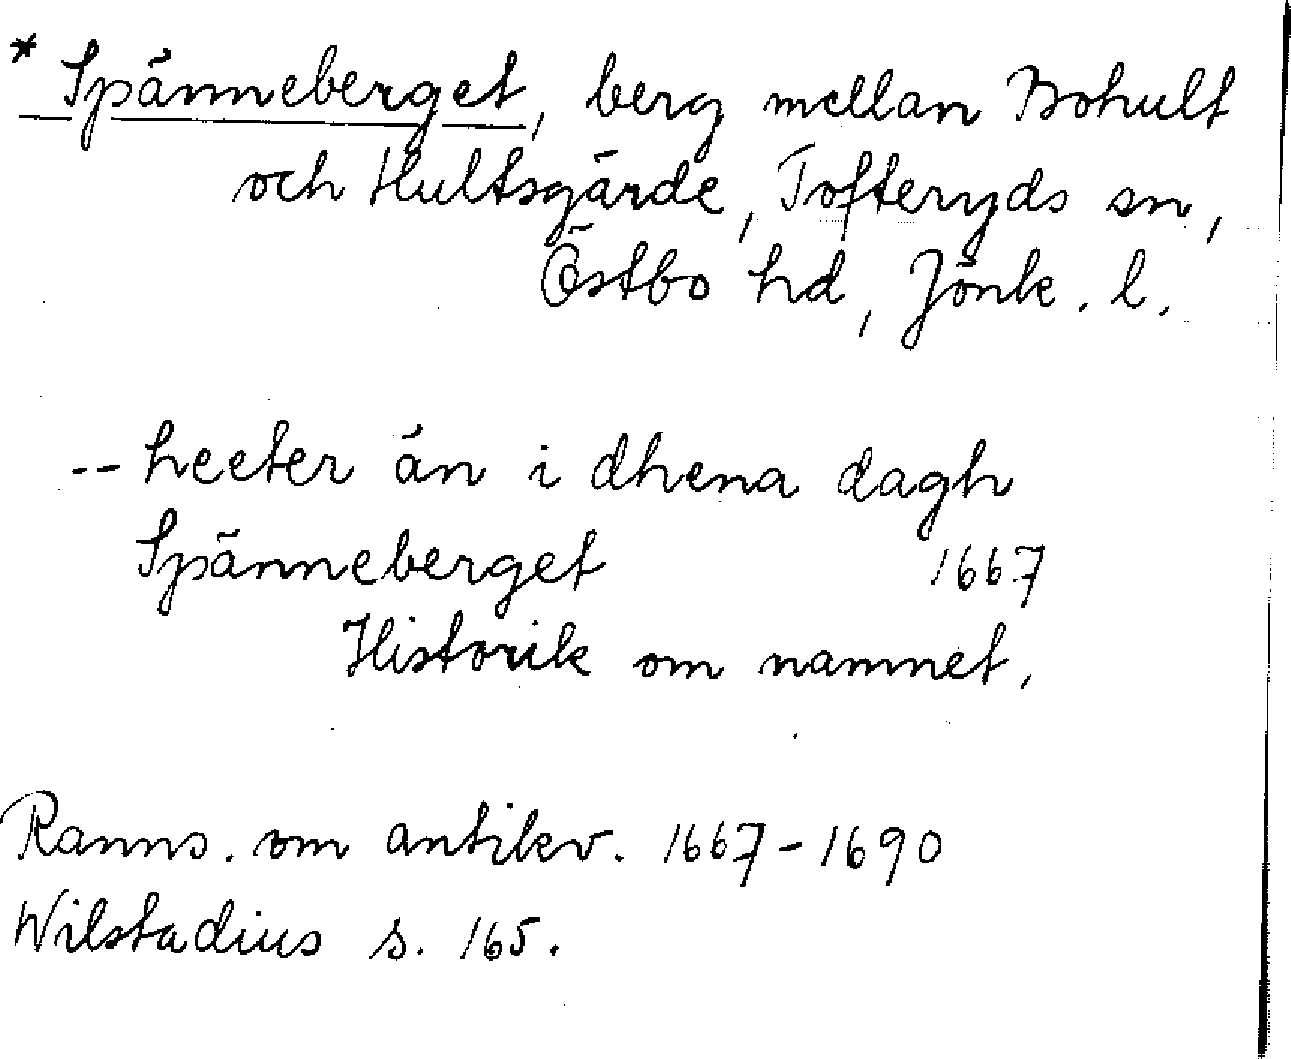 * Spänneberget, berg mellan Bohult
och Hultsgärde, Tofteryds sn,
Östbo hd, Jönk. l.
-- heeter än i dhena dagh
Spänneberget 1667
Historik om namnet.
Ranns. om antikv. 1667-1690
Wilstadius s. 165.